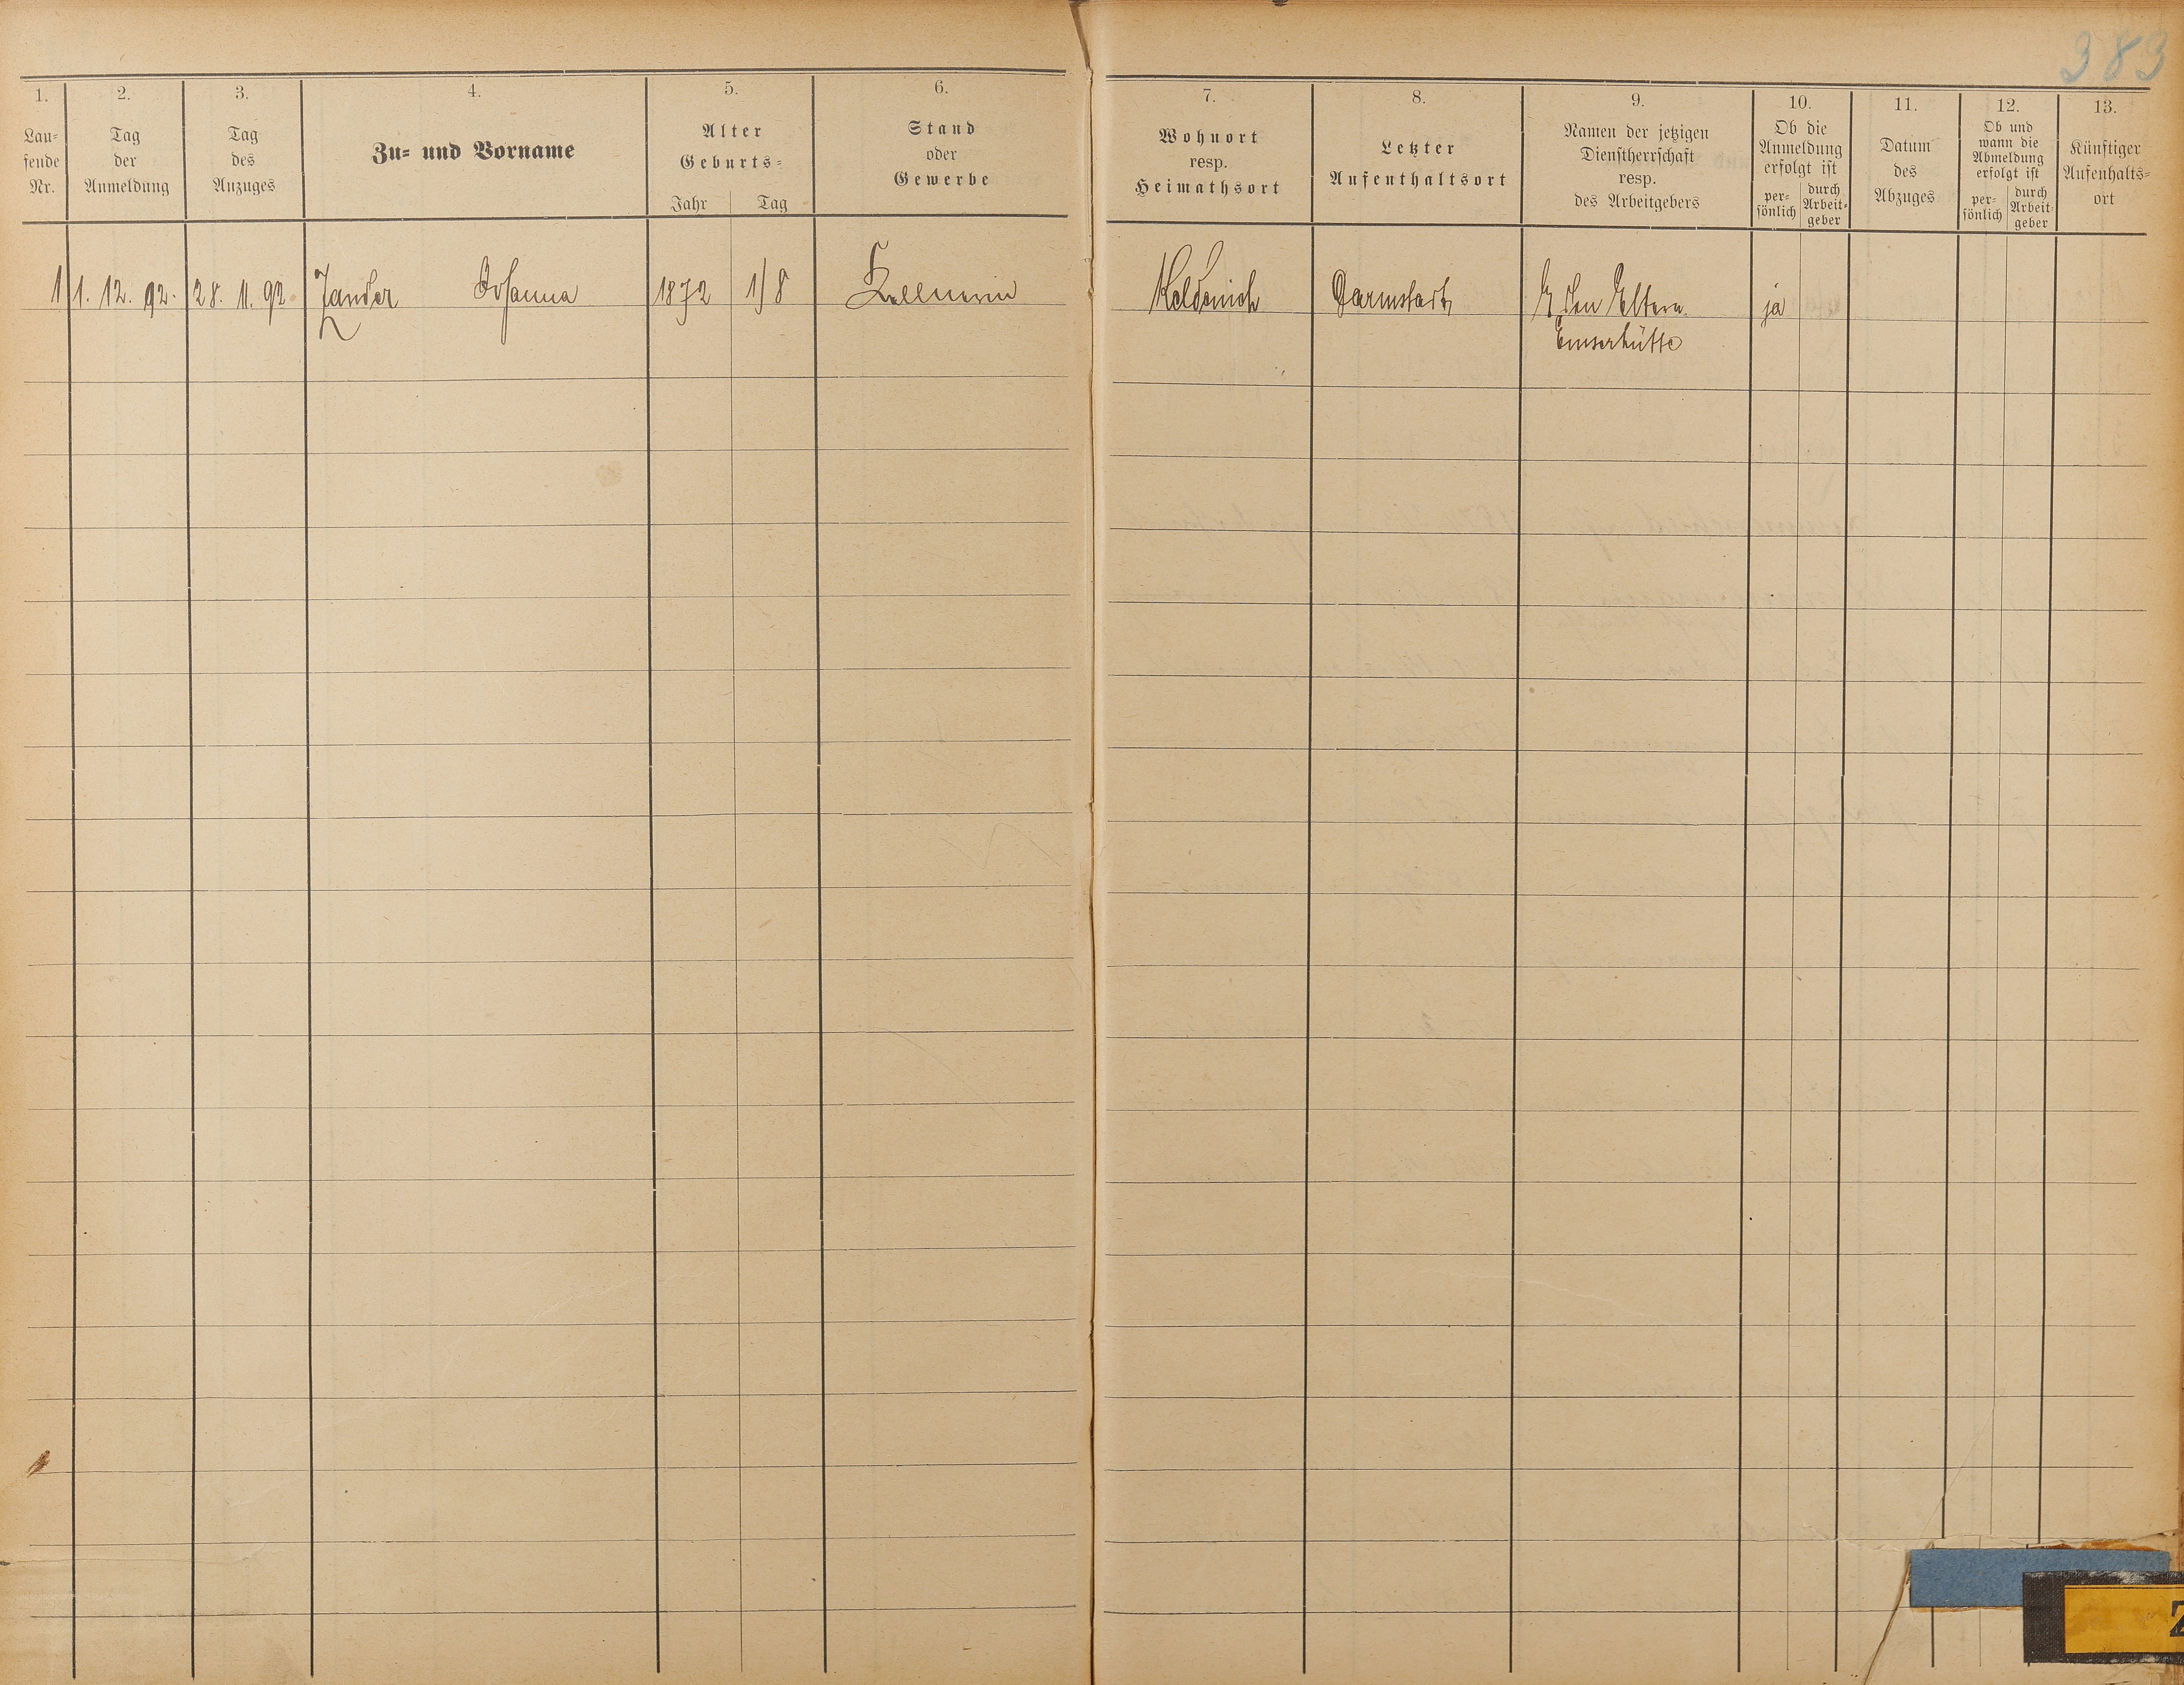 383
1.
2.
3.
4.
5.
6.
7.
8.
9.
10.
11.
12.
13.
Lau-
fende
Nr.
Tag
der
Anmeldung
Tag
des
Anzuges
Zu- und Vorname
Alter
Geburts-
Jahr
Tag
Stand
oder
Gewerbe
Wohnort
resp.
Heimathsort
Letzter
Aufenthaltsort
Namen der jetzigen
Dienstherrschaft
resp.
des Arbeitgebers
Ob die
Anmeldung
erfolgt ist
per-
sönlich
durch
Arbeit-
geber
Datum
des
Abzuges
Ob und
wann die
Abmeldung
erfolgt ist
per-
sönlich
durch
Arbeit-
geber
Künftiger
Aufenhalts-
ort
1 1. 12. 92. 28. 11. 92. Zander Johanna 1872 1/8 Kellnerin Darmstadt den Eltern ja
Emserhütte
Z